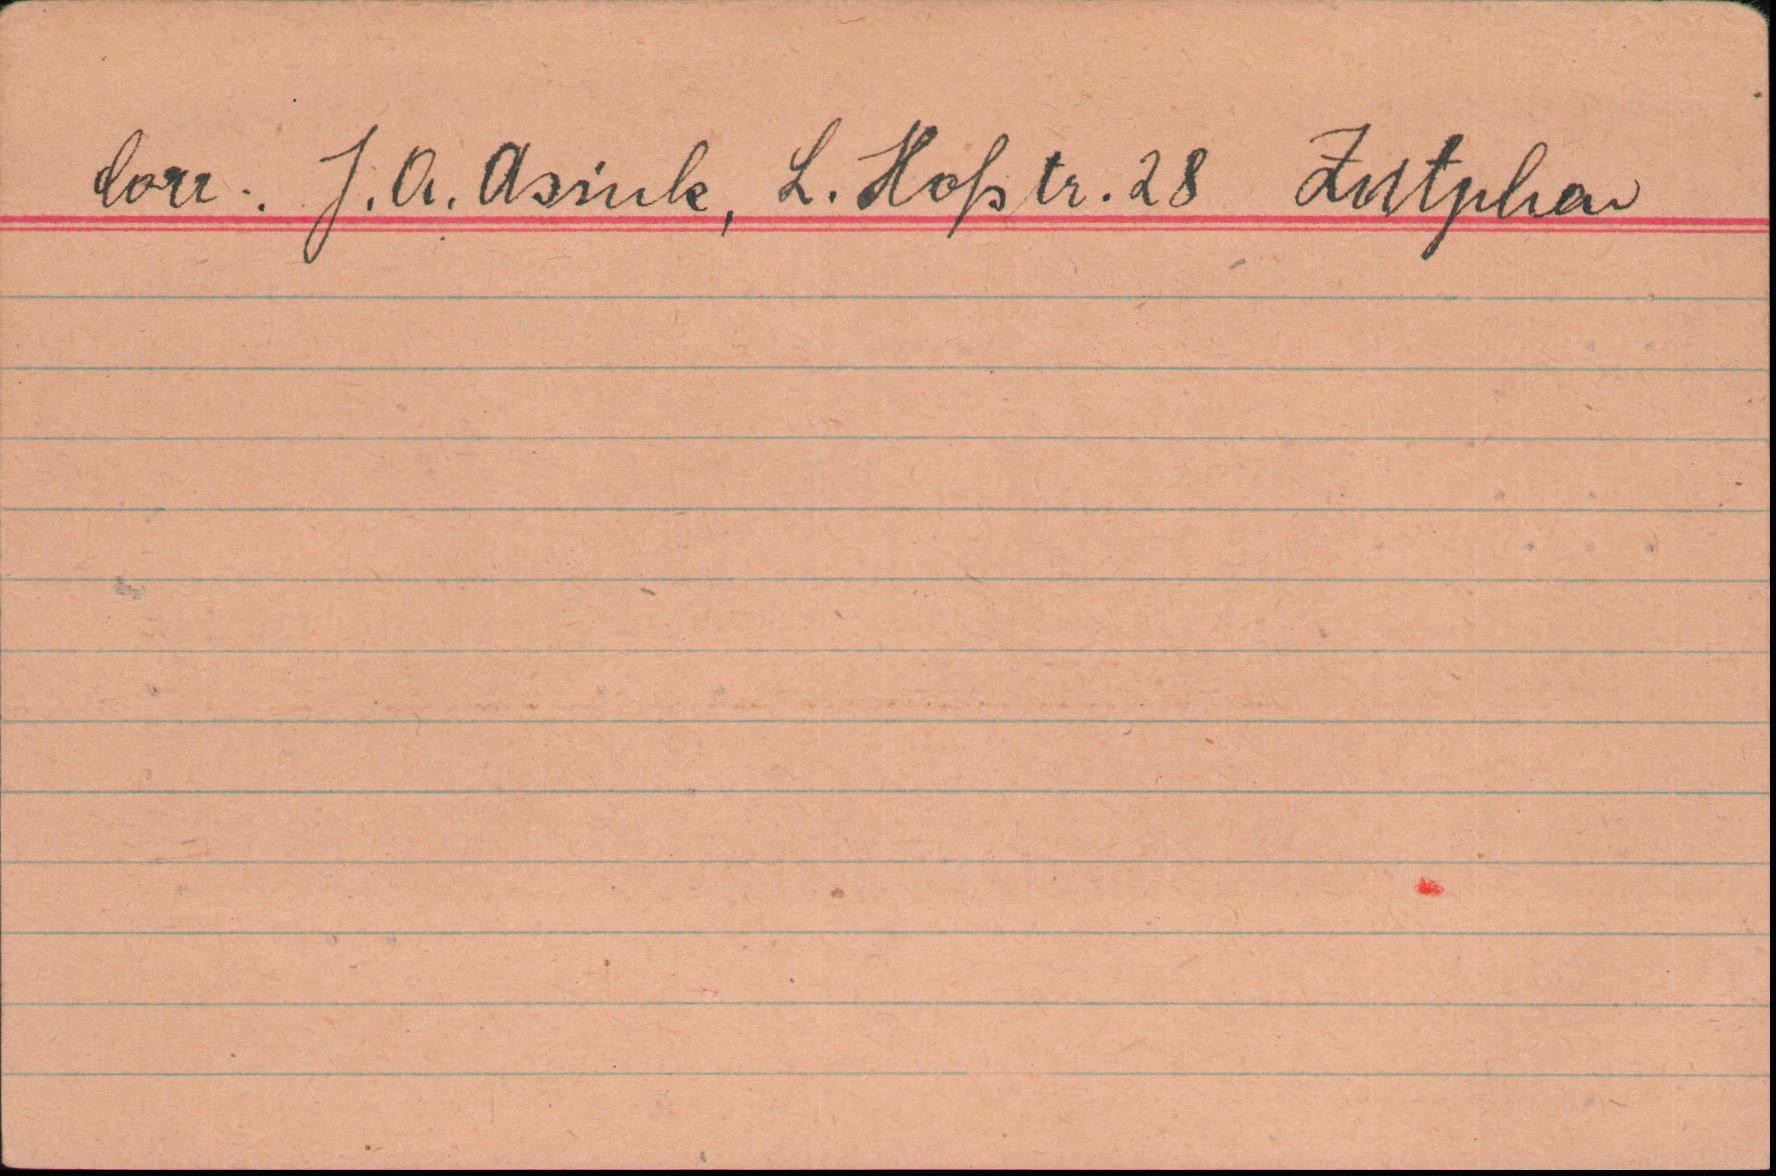 Corr. J. A. Assink, L. Hofstr. 28 Zutphen